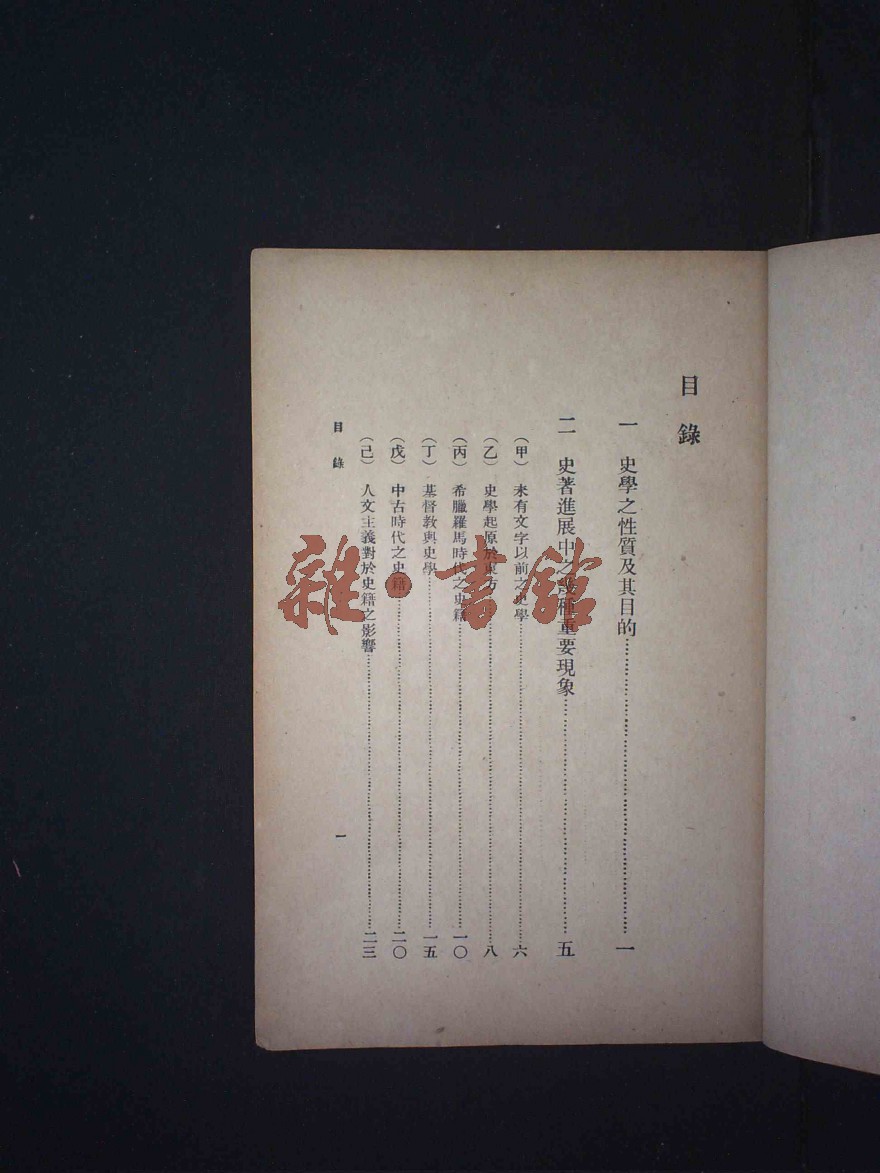 目錄
一 史學之性質及其目的……一
二 史著進展中之幾種重要現象……五
（甲） 未有文字以前之史學……六
（乙） 史學起原於東方……八
（丙） 希臘羅馬時代之史籍……一〇
（丁） 基督教與史學……一五
（戊） 中古時代之史籍……二〇
（己） 人文主義對於史籍之影響……二三
目錄
一
雜·書館